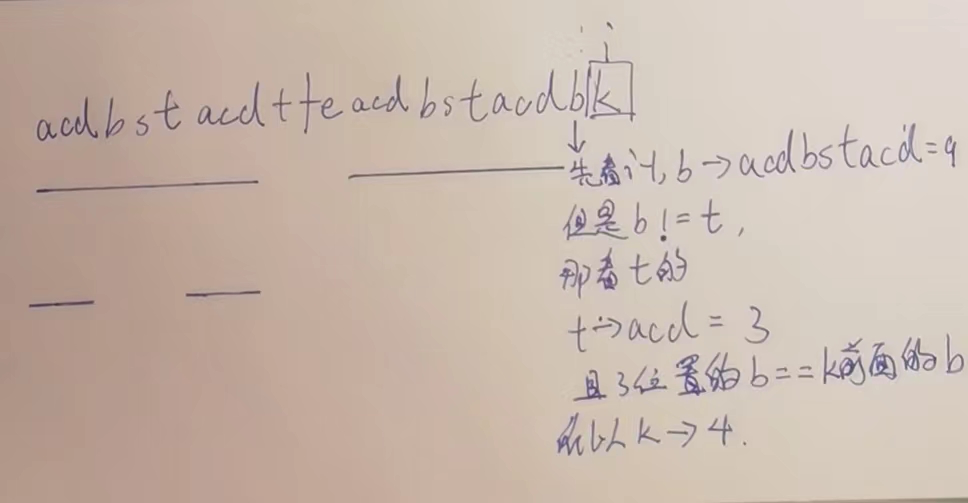 i
acdbstacdtteacdbstacdbk
先看i-1, b→acdbstacd=9
但是b!=t,
那看t的
t→acd=3
且3位置的b==k前面的b
所以k→4.